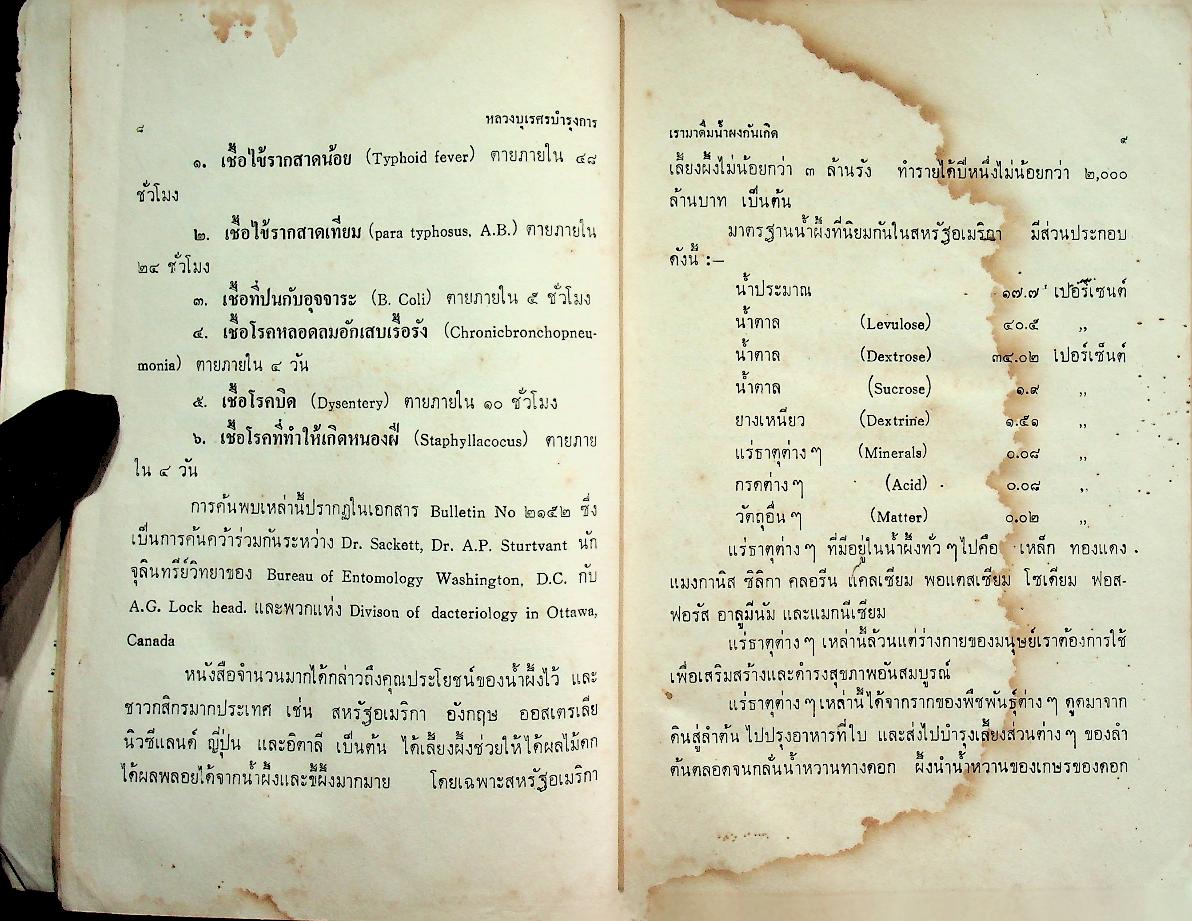 ๘
หลวงบุเรศรบำรุงการ
๑. เชื้อไข้รากสาดน้อย (Typhoid fever) ตายภายใน ๔๘
ชั่วโมง
๒. เชื้อไข้รากสาดเทียม (para typhosus, A.B.) ตายภายใน
๒๔ ชั่วโมง
๓. เชื้อที่ปนกับอุจจาระ (B. Coli) ตายภายใน ๕ ชั่วโมง
๔. เชื้อโรคหลอดลมอักเสบเรื้อรัง (Chronicbronchopneu-
monia) ตายภายใน ๔ วัน
๕. เชื้อโรคบิด (Dysentery) ตายภายใน ๑๐ ชั่วโมง
๖. เชื้อโรคที่ทำให้เกิดหนองฝี (Staphyllacocus) ตายภาย
ใน ๔ วัน
การค้นพบเหล่านี้ปรากฏในเอกสาร Bulletin No ๒๑๕๒ ซึ่ง
เป็นการค้นคว้าร่วมกันระหว่าง Dr. Sackett, Dr. A.P. Sturtvant นัก
จุลินทรีย์วิทยาของ Bureau of Entomology Washington, D.C. กับ
A.G. Lock head. และพวกแห่ง Divison of dacteriology in Ottawa,
Canada
หนังสือจำนวนมากได้กล่าวถึงคุณประโยชน์ของน้ำผึ้งไว้ และ
ชาวกสิกรมากประเทศ เช่น สหรัฐอเมริกา อังกฤษ ออสเตรเลีย
นิวซีแลนด์ ญี่ปุ่น และอิตาลี เป็นต้น ได้เลี้ยงผึ้งช่วยให้ได้ผลไม้ดก
ได้ผลพลอยได้จากน้ำผึ้งและขี้ผึ้งมากมาย โดยเฉพาะสหรัฐอเมริกา
เรามาดื่มน้ำผึ้งกันเถิด
๙
เลี้ยงผึ้งไม่น้อยกว่า ๓ ล้านรัง ทำรายได้ปีหนึ่งไม่น้อยกว่า ๒,๐๐๐
ล้านบาท เป็นต้น
มาตรฐานน้ำผึ้งที่นิยมกันในสหรัฐอเมริกา มีส่วนประกอบ
ดังนี้ :—
น้ำประมาณ ๑๗.๗ เปอร์เซนต์
น้ำตาล (Levulose) ๔๐.๕ ,,
น้ำตาล (Dextrose) ๓๔.๐๒ เปอร์เซ็นต์
น้ำตาล (Sucrose) ๑.๙ ,,
ยางเหนียว (Dextrine) ๑.๕๑ ,,
แร่ธาตุต่าง ๆ (Minerals) ๐.๐๘ ,,
กรดต่าง ๆ (Acid) ๐.๐๘ ,,
วัตถุอื่น ๆ (Matter) ๐.๐๒ ,,
แร่ธาตุต่าง ๆ ที่มีอยู่ในน้ำผึ้งทั่ว ๆ ไปคือ เหล็ก ทองแดง
แมงกานิส ซิลิกา คลอรีน แคลเซียม พอแตสเซียม โซเดียม ฟอส-
ฟอรัส อาลูมีนัม และแมกนีเซียม
แร่ธาตุต่าง ๆ เหล่านี้ล้วนแต่ร่างกายของมนุษย์เราต้องการใช้
เพื่อเสริมสร้างและดำรงสุขภาพอันสมบูรณ์
แร่ธาตุต่าง ๆ เหล่านี้ได้จากรากของพืชพันธุ์ต่าง ๆ ดูดมาจาก
ดินสู่ลำต้น ไปปรุงอาหารที่ใบ และส่งไปบำรุงเลี้ยงส่วนต่าง ๆ ของลำ
ต้นตลอดจนกลั่นน้ำหวานทางดอก ผึ้งนำน้ำหวานของเกษรของดอก